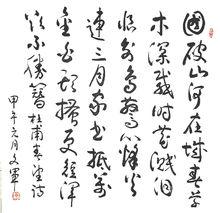 國破山河在城春草
木深感時花濺淚
恨別鳥驚心烽火
連三月家書抵萬
金白頭搔更短渾
欲不勝簪 杜甫春望詩
甲午元月文軍